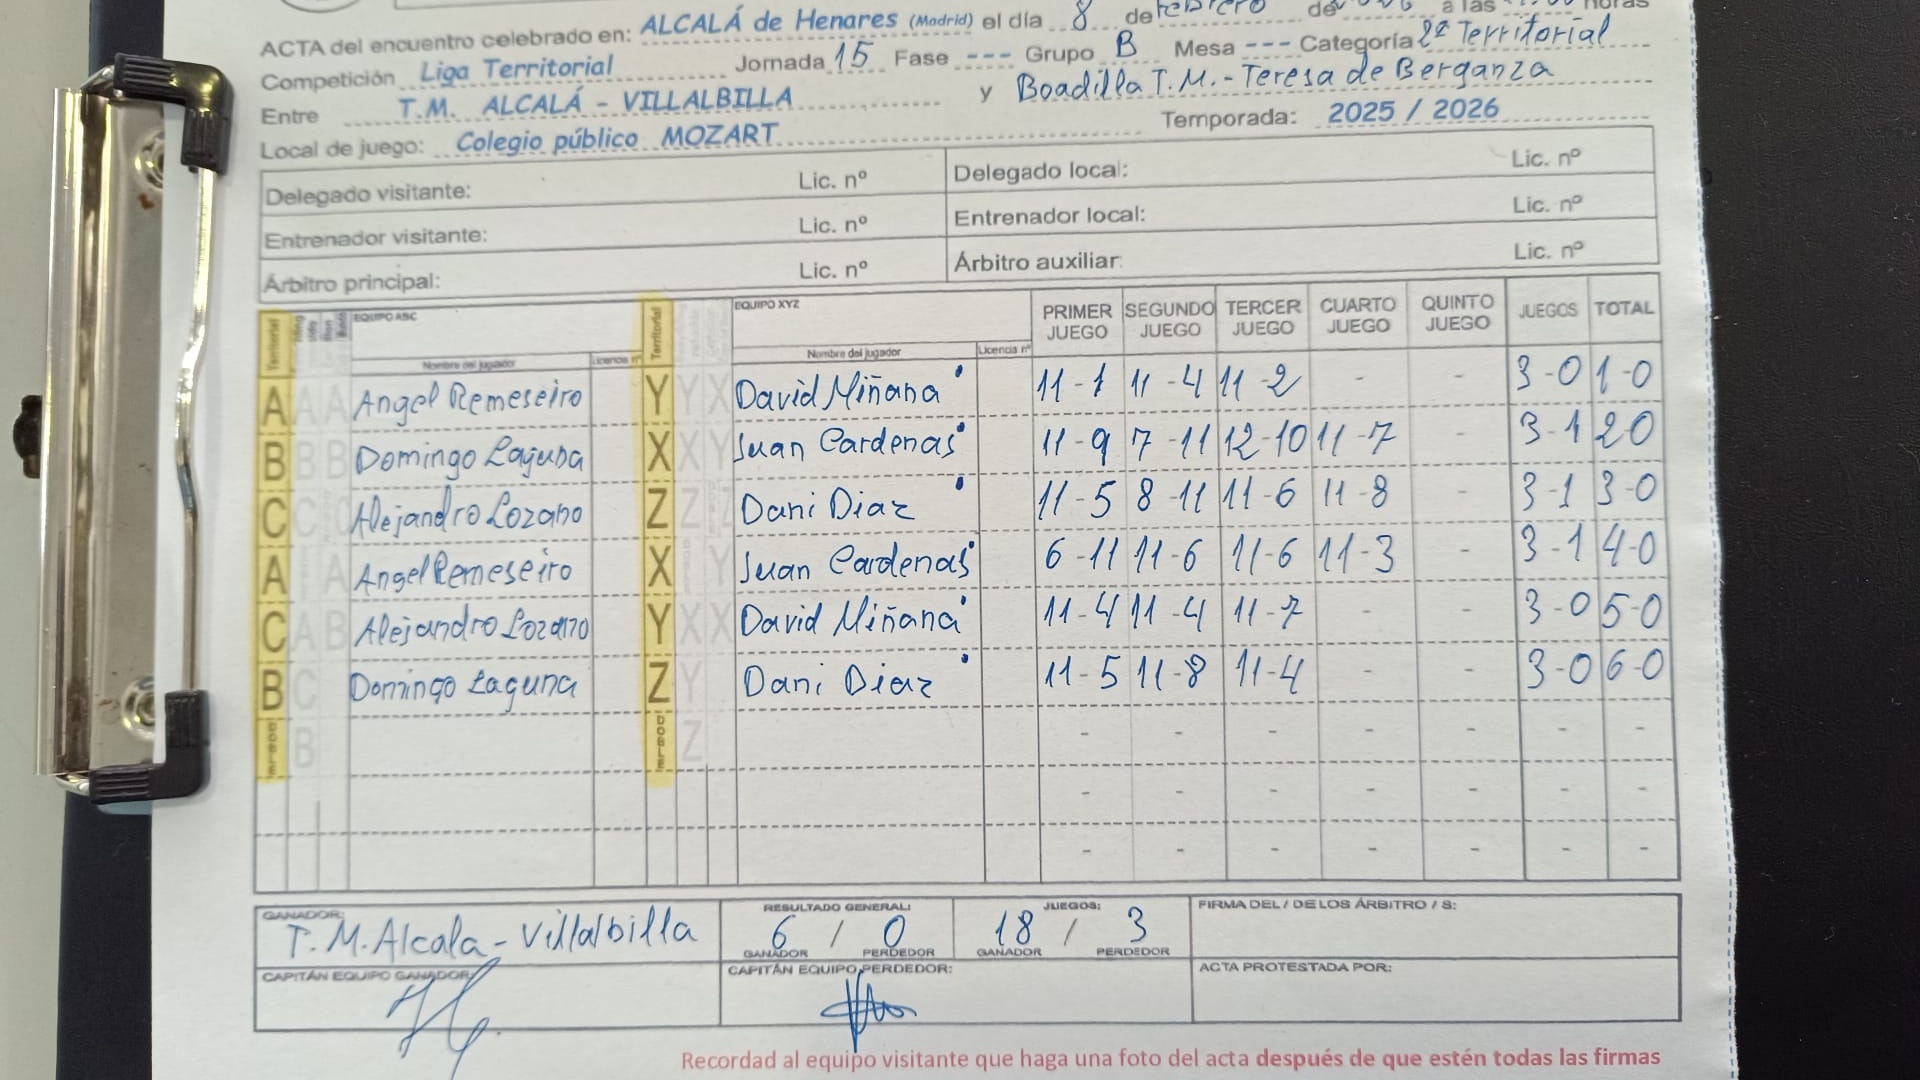 ACTA del encuentro celebrado en: ALCALÁ de Henares (Madrid) el día 8 de Febrero de a las horas
Competición Liga Territorial Jornada 15 Fase --- Grupo B Mesa --- Categoría 2ª Territorial
Entre T.M. ALCALÁ - VILLALBILLA y Boadilla T.M.-Teresa de Berganza
Local de juego: Colegio público MOZART Temporada: 2025 / 2026
Delegado visitante: Lic. nº Delegado local: Lic. nº
Entrenador visitante: Lic. nº Entrenador local: Lic. nº
Árbitro principal: Lic. nº Árbitro auxiliar: Lic. nº
Territorial EQUIPO ABC Territorial EQUIPO XYZ PRIMER JUEGO SEGUNDO JUEGO TERCER JUEGO CUARTO JUEGO QUINTO JUEGO JUEGOS TOTAL
Nombre del jugador Licencia nº Nombre del jugador Licencia nº
A A A Angel Remeseiro Y Y X David Miñana 11-1 11-4 11-2 - - 3-0 1-0
B B B Domingo Laguna X X Y Juan Cardenas 11-9 7-11 12-10 11-7 - 3-1 2-0
C C C Alejandro Lozano Z Z Z Dani Diaz 11-5 8-11 11-6 11-8 - 3-1 3-0
A A Angel Remeseiro X Y Juan Cardenas 6-11 11-6 11-6 11-3 - 3-1 4-0
C A B Alejandro Lozano Y X X David Miñana 11-4 11-4 11-7 - - 3-0 5-0
B C Domingo Laguna Z Y Dani Diaz 11-5 11-8 11-4 - - 3-0 6-0
DOBLE B DOBLE Z - - - - - - -
- - - - - - -
- - - - - - -
GANADOR: T.M.Alcala-Villalbilla RESULTADO GENERAL: 6 / 0 GANADOR PERDEDOR JUEGOS: 18 / 3 GANADOR PERDEDOR FIRMA DEL / DE LOS ÁRBITRO / S:
CAPITÁN EQUIPO GANADOR: CAPITÁN EQUIPO PERDEDOR: ACTA PROTESTADA POR:
Recordad al equipo visitante que haga una foto del acta después de que estén todas las firmas